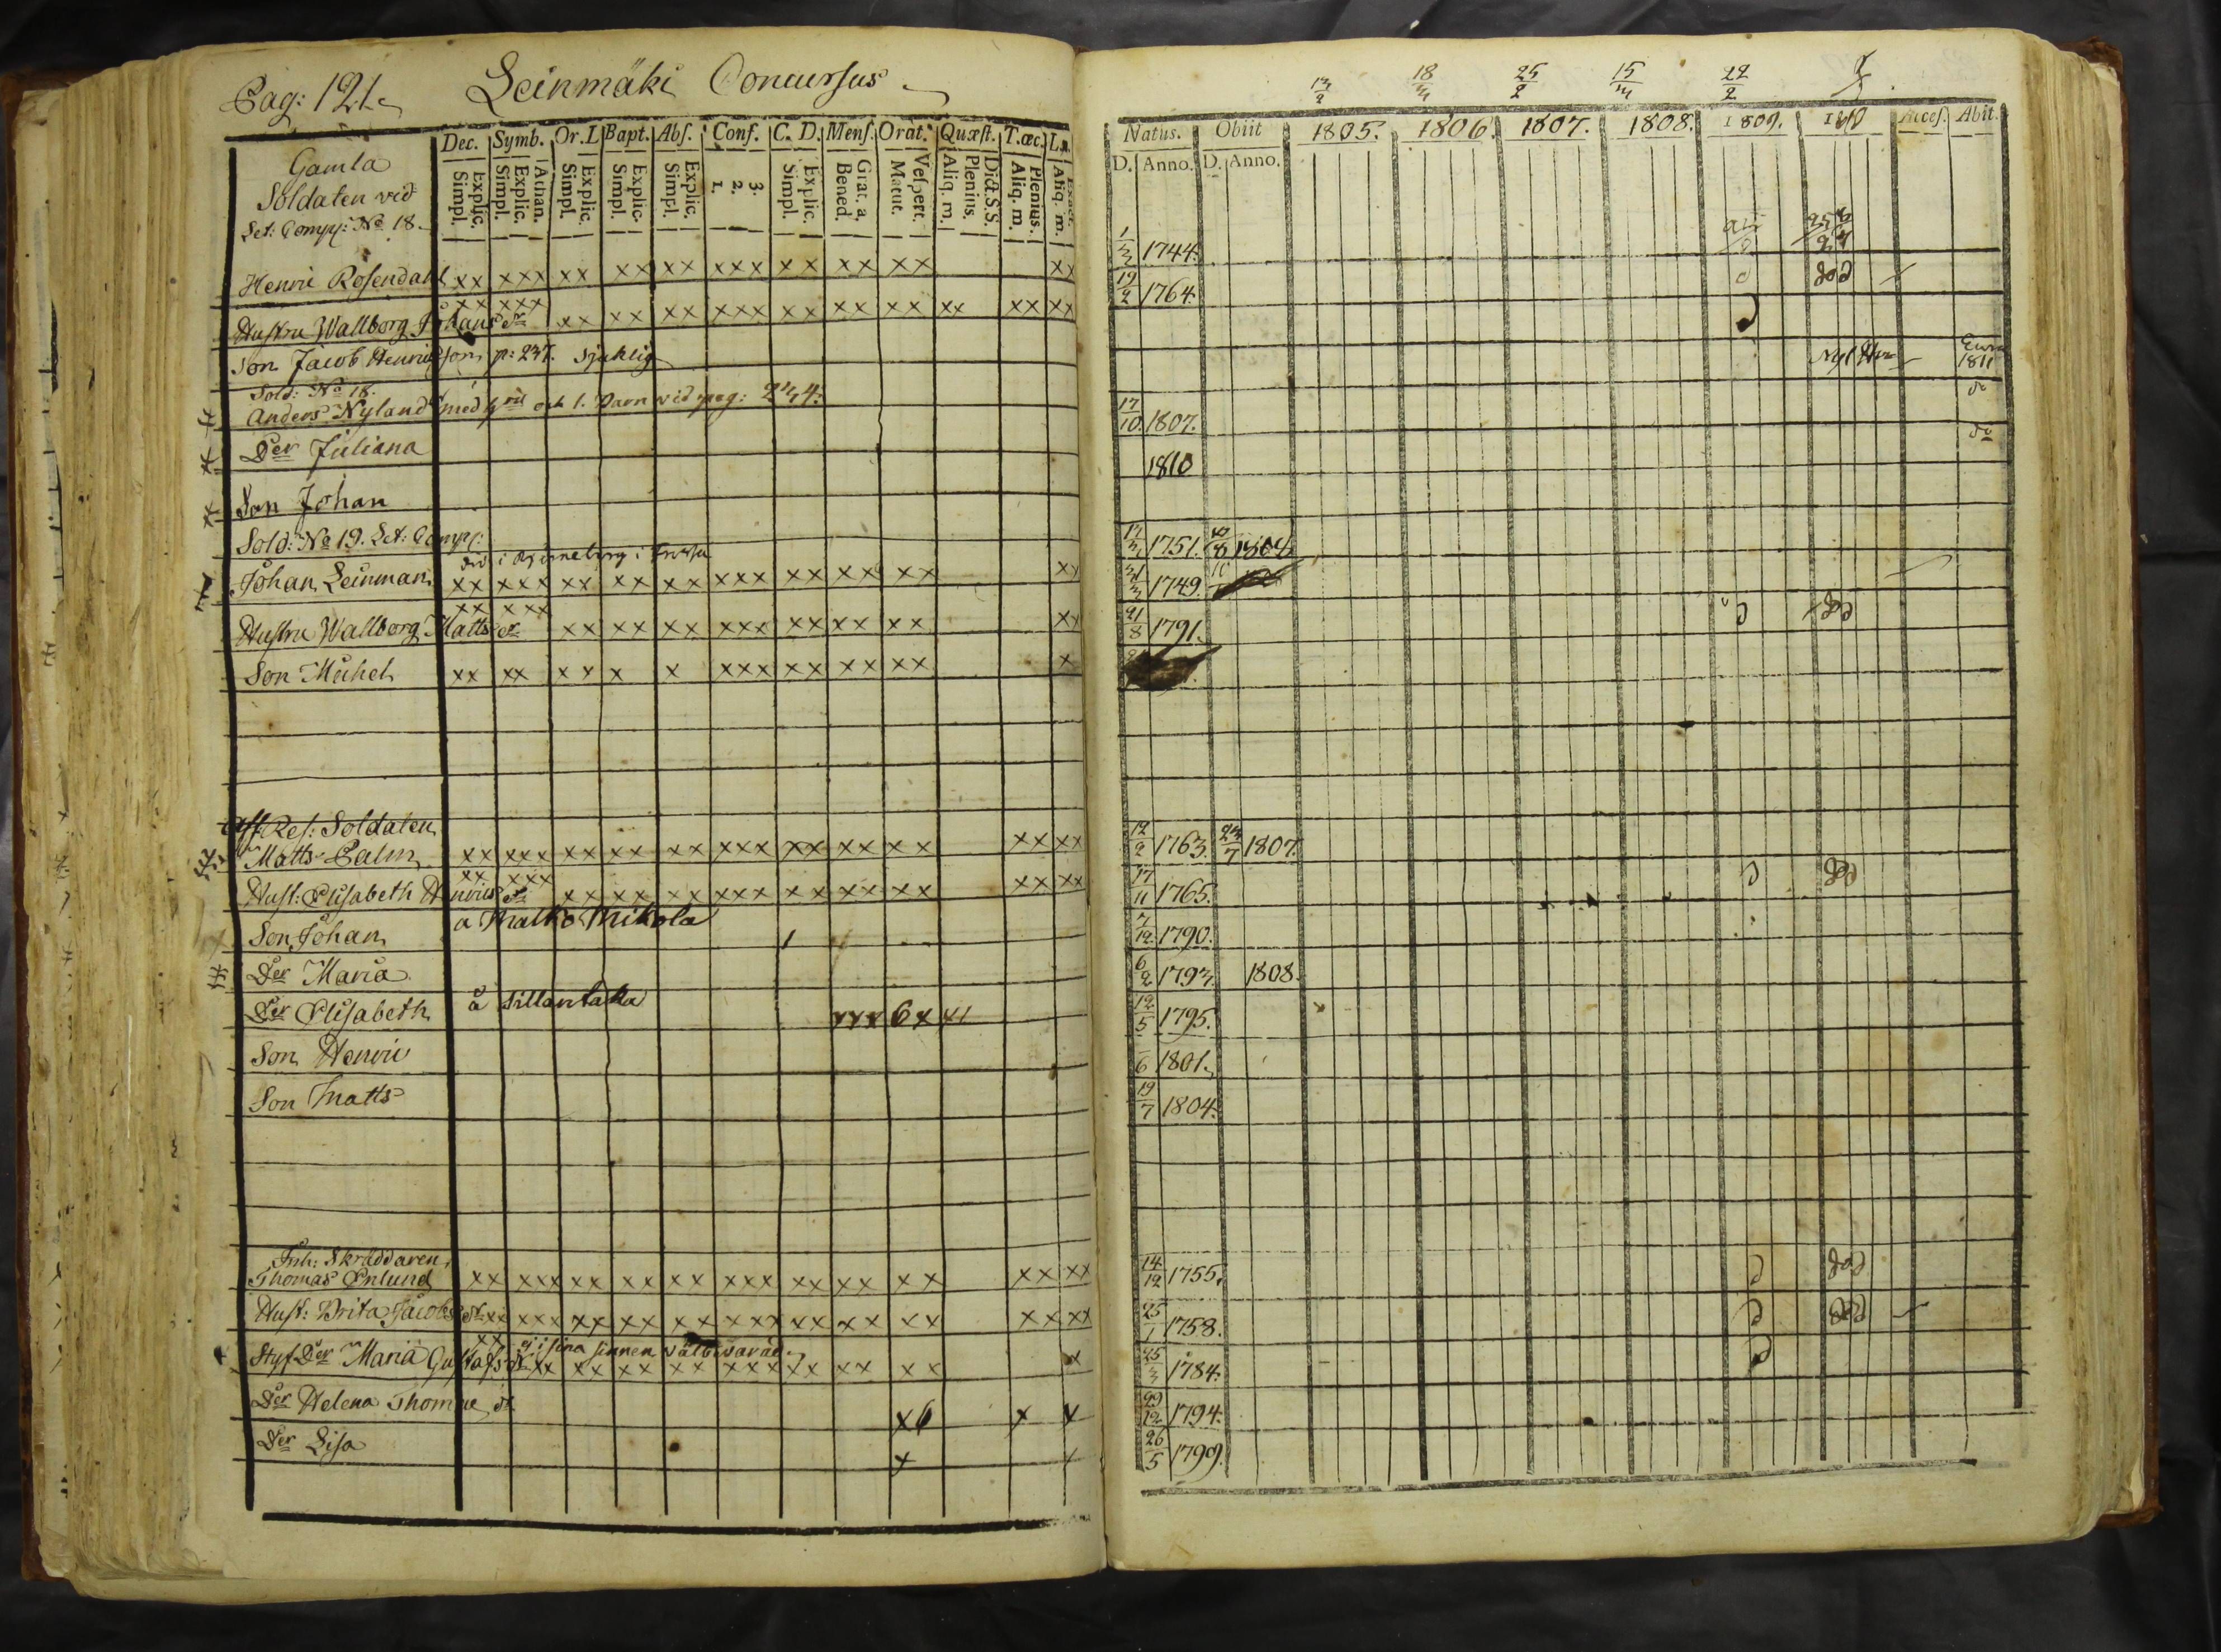 Pag: 121. Leinmäki Concursus
Dec. Symb. Or. L Bapt. Abſ. Conf. C. D. Menſ. Orat. Quæſt. T. œc. L.
Explic. Simpl. Athan. Explic. Simpl. Explic. Simpl. Explic. Simpl. Explic. Simpl. 3. 2. 1. Explic. Simpl. Grat. a. Bened. Veſpert. Matut. Dict. S.S. Plenius. Aliq. m. Plenius. Aliq. m. Aliq. m.
Gamla
Soldaten vid
Let: Comp: No 18.
Henric Rosendahl xx xxx xx xx xx xxx xx xx xx xx
Hustru Wallborg Johans dr xx xxx xx xx xx xxx xx xx xx xx xx xx
Son Jacob Henricsson p: 237. sjuklig
Sold: No 18.
Anders Nyland med hru och 1. Barn vid pag: 244.
Der Juliana
Son Johan
Sold: No 19. Let: Comp:
död i Björneborg i
Johan Leinman xx xxx xx xx xx xxx xx xx xx xx
Hustru Wallborg Matts dr xx xxx xx xx xx xxx xx xx xx xx
Son Michel xx xx xx x x xxx xx xx xx x
Aff Res: Soldaten
Matts Palm xx xxx xx xx xx xxx xx xx xx xx xx
Hust: Elisabeth Henrics dr xx xxx xx xx xx xxx xx xx xx xx xx
Son Johan a Matko Mikola
Der Maria
Der Elisabeth å Sillantaka
Son Henric
Son Matts
Inh: Skräddaren
Thomas Enlund xx xxx xx xx xx xxx xx xx xx xx xx
Hust: Brita Jacobs dr xx xxx xx xx xx xxx xx xx xx xx xx
ej i sina sinnen väl bevarad
Styf Der Maria Gustafs dr xx xx xx xx xxx xx xx xx x
Der Helena Thomae dr x6 x x
Der Lisa x
13/2 18/3 25/2 15/3 22/2
Natus. Obiit 1805. 1806. 1807. 1808. 1809. 1810 Acceſ. Abit.
D. Anno. D. Anno.
1/3 1744.
19/2 1764.
Eura
1811
17/10 1807. do
1810 do
1751. 1808
1749.
21/8 1791.
12/2 1763. 23/7 1807.
17/11 1765.
7/12 1790.
6/2 1793. 1808.
12/5 1795.
6 1801.
19/7 1804.
14/12 1755.
25/1 1758.
25/3 1784.
29/12 1794.
26/5 1799.